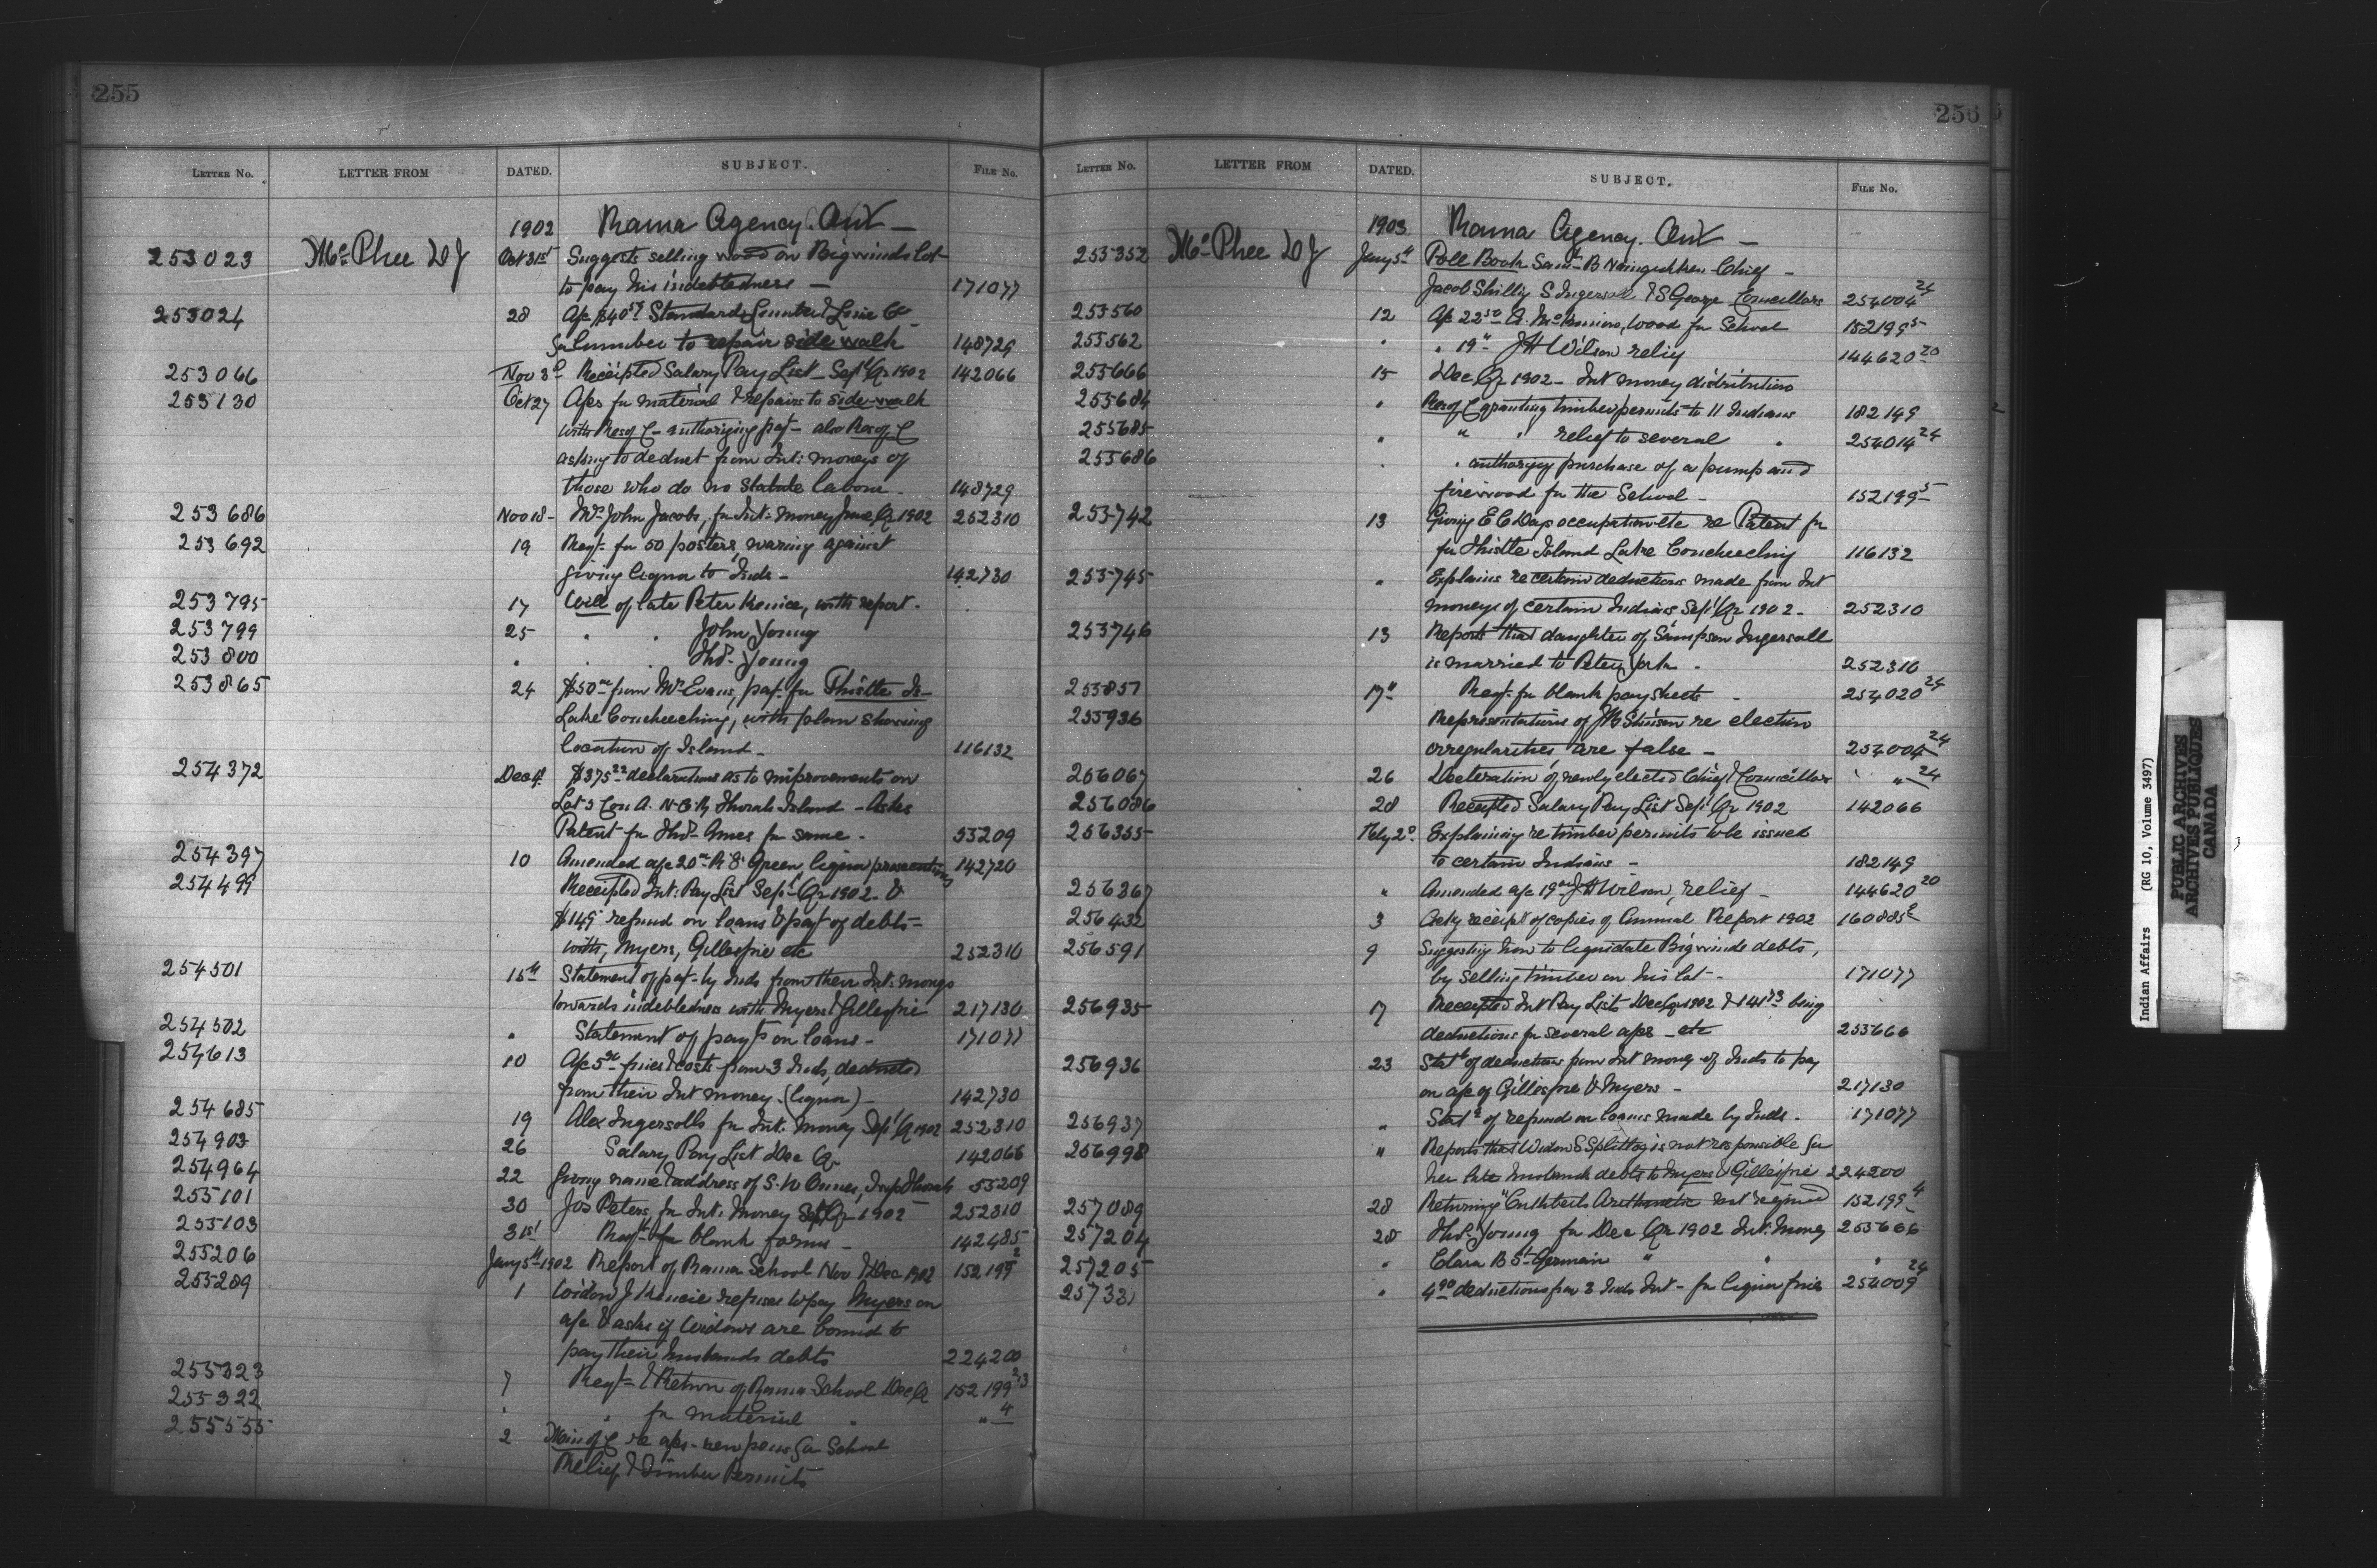 255
LETTER No. LETTER FROM DATED. SUBJECT. FILE No.
1902 Rama Agency. Ont —
253023 McPhee DJ Oct 31st Suggests selling wood on Bigwinds Lot
to pay his indebtedness — 171077
253024 28 A/c $40 Standard Lumber & Co
for Lumber to repair side walk 148729
253066 Nov 3d Receipted Salary Pay List Sept Qr 1902 142066
253130 Oct 27 A/cs for material & repairs to side-walk
with Res of C - authorizing pay't - also Res of C
asking to deduct from Int: moneys of
those who do no Statute labour - 148729
253686 Nov 18 - Mrs John Jacobs, for Int: money June Qr 1902 252310
253692 19 Reqt for 50 posters, warning against
giving liquor to Inds - 142730
253795 17 Will of late Peter Kenice, with report -
253799 25 " " John Young
253800 " " " Thos Young
253865 24 $50 from Mr Evans, pay't for Thistle Is -
Lake Couchiching, with plan showing
location of Island - 116132
254372 Dec 4 $375 declarations as to improvements on
Lot 3 Con A. Thorah Island - Asks
Patent for Thos for same - 55209
254397 10 Amended a/c 20 Green, liquor prosecutions 142720
254499 Receipted Int: Pay List Sept Qr 1902 - &
$149 refund on loans & pay't of debts =
with, Myers, Gillespie etc 252310
254501 15th Statement of pay't by Inds from their Int: moneys
towards indebtedness with Myers & Gillespie 217130
254502 " Statement of pay'ts on loans - 171077
254613 10 A/c 5 fines & costs from 3 Inds, deducted
from their Int money. (liquor) - 142730
254685 19 Alex Ingersolls for Int: money Sept Qr 1902 252310
254903 26 Salary Pay List Dec Qr 142066
254964 22 Giving name & address of S. W Thorah 55209
255101 30 Jos Peters for Int: Money Sept Qr 1902 252310
255103 31st Reqt for blank forms - 142485
255206 Jany 5th 1902 Report of Rama School Nov & Dec 1902 152199 2
255289 1 Widow J Kenice refuses to pay Myers on
a/c & asks if Widows are bound to
pay their husbands debts 224200
255323 7 Reqt & Return of Rama School Dec Qr 152199 2/3
255322 " " for material " " 4
255555 2 Min of C re a/cs - new pews for School
Relief & Timber Permits
256
LETTER No. LETTER FROM DATED. SUBJECT. FILE No.
1903 Rama Agency. Ont —
255352 McPhee DJ Jany 5th Poll Book Saml B Nainigishken Chief -
Jacob Shilling S Ingersoll & S George Councillors 254004 24
255560 12 A/c 22 wood for School 152199 5
255562 " " 19 J H Wilson relief 144620 20
255666 15 Dec Qr 1902 - Int money distribution
255684 " Res of C granting timber permits to 11 Indians 182149
255685 " " " relief to several " 254014 24
255686 " " authorizing purchase of a pump and
firewood for the School - 152199 5
255742 13 Giving E C Days occupation etc re Patent for
for Thistle Island Lake Couchiching 116132
255745 " Explains re certain deductions made from Int
moneys of certain Indians Sept Qr 1902 - 252310
255746 13 Reports that daughter of Sampson Ingersoll
is married to Peter York - 252310
255857 17th Reqt for blank pay sheets - 254020 24
255936 Representations of J B Stinson re election
irregularities are false - 254004 24
256067 26 Decleration of newly elected Chief & Councillors " " 24
256086 28 Receipted Salary Pay List Sept Qr 1902 142066
256355 Feby 2d Explaining re timber permits to be issued
to certain Indians - 182149
256367 " Amended a/c 19 J H Wilson, relief - 144620 20
256432 3 Ackg receipt of copies of Annual Report 1902 160885 2
256591 9 Suggesting how to liquidate Bigwinds debts,
by selling timber on his lot - 171077
256935 17 Receipted Int Pay List Dec Qr 1902 & 141 73 being
deductions for several a/cs - etc 255666
256936 23 Statt of deductions from Int money of Inds to pay
on a/c of Gillespie & Myers - 217130
256937 " Statt of refund on loans made by Inds - 171077
256998 " Reports that Widow S Splitlog is not responsible for
her late husbands debts to Myers & Gillespie 224200
257089 28 Returning "Cuthberts Arithmetic not required 152199 4
257204 28 Thos Young for Dec Qr 1902 Int. Money 255666
257205 " Clara B St Germain " " "
257331 " 4 90 deductions from 3 Inds Int - for liquor fines 254009 24
Indian Affairs (RG 10, Volume 3497)
PUBLIC ARCHIVES
ARCHIVES PUBLIQUES
CANADA